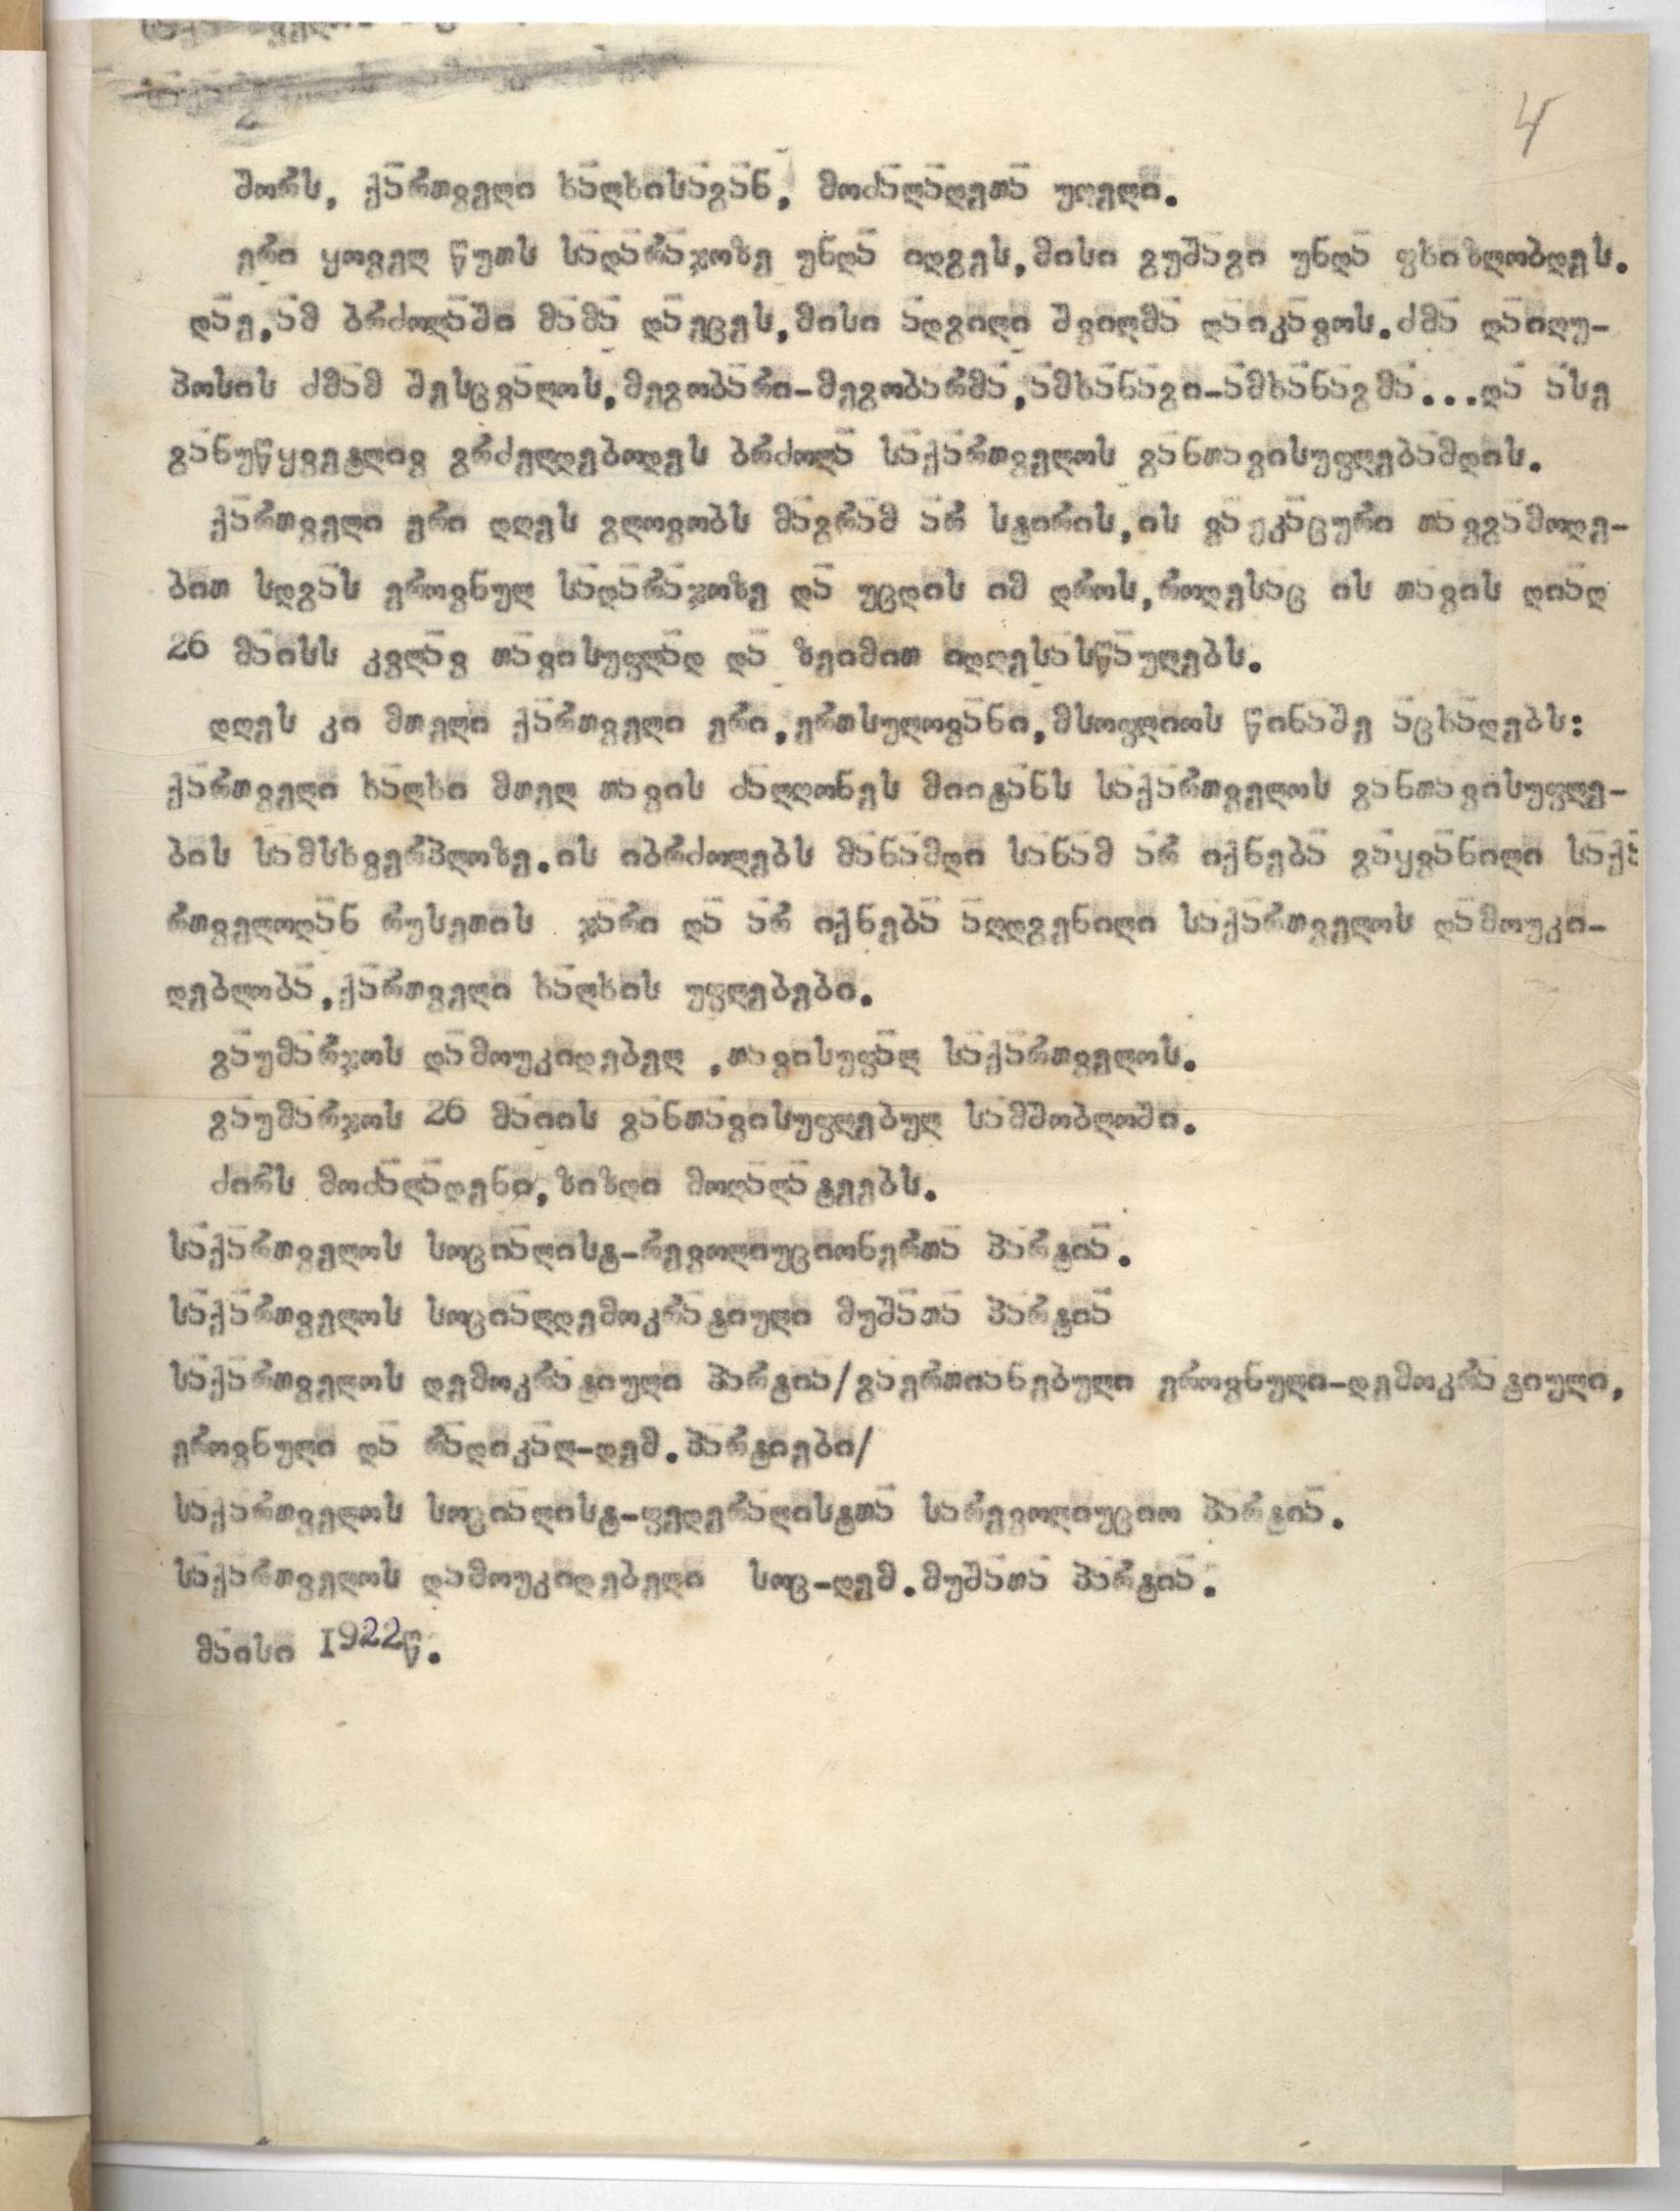 4
2
შორს, ქართველი ხალხისაგან, მოძალადეთა უღელი.
ერი ყოველ წუთს სადარაჯოზე უნდა იდგეს,მისი გუშაგი უნდა ფხიზლობდეს.
დაე,ამ ბრძოლაში მამა დაეცეს,მისი ადგილი შვილმა დაიკავოს.ძმა დაიღუ-
პოსის ძმამ შესცვალოს,მეგობარი-მეგობარმა,ამხანაგი-ამხანაგმა...და ასე
განუწყვეტლივ გრძელდებოდეს ბრძოლა საქართველოს განთავისუფლებამდის.
ქართველი ერი დღეს გლოვობს მაგრამ არ სტირის,ის ვაჟკაცური თავგამოდე-
ბით სდგას ეროვნულ სადარაჯოზე და უცდის იმ დროს,როდესაც ის თავის დიად
26 მაისს კვლავ თავისუფლად და ზეიმით იდღესასწაულებს.
დღეს კი მთელი ქართველი ერი,ერთსულოვანი,მსოფლიოს წინაშე აცხადებს:
ქართველი ხალხი მთელ თავის ძალღონეს მიიტანს საქართველოს განთავისუფლე-
ბის სამსხვერპლოზე.ის იბრძოლებს მანამდი სანამ არ იქნება გაყვანილი საქა
რთველოდან რუსეთის ჯარი და არ იქნება აღდგენილი საქართველოს დამოუკი-
დებლობა,ქართველი ხალხის უფლებები.
გაუმარჯოს დამოუკიდებელ ,თავისუფალ საქართველოს.
გაუმარჯოს 26 მაიის განთავისუფლებულ სამშობლოში.
ძირს მოძალადენი,ზიზღი მოღალატეებს.
საქართველოს სოციალისტ-რევოლიუციონერთა პარტია.
საქართველოს სოციალდემოკრატიული მუშათა პარტია
საქართველოს დემოკრატიული პარტია/გაერთიანებული ეროვნული-დემოკრატიული,
ეროვნული და რადიკალ-დემ.პარტიები/
საქართველოს სოციალისტ-ფედერალისტთა სარევოლიუციო პარტია.
საქართველოს დამოუკიდებელი სოც-დემ.მუშათა პარტია.
მაისი I922წ.